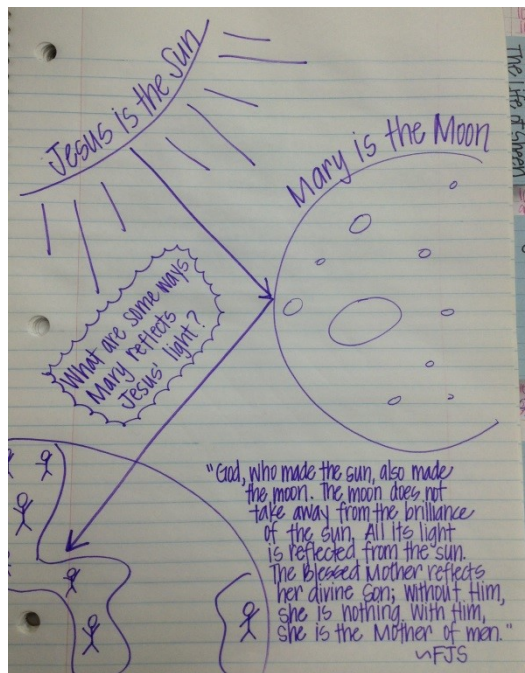 Jesus is the Sun
The Life of Sheen
Mary is the Moon
What are some ways
Mary reflects
Jesus' light?
"God, who made the sun, also made
the moon. The moon does not
take away from the brilliance
of the sun. All its light
is reflected from the sun.
The Blessed Mother reflects
her divine Son; without Him,
she is nothing. With Him,
she is the Mother of men."
~FJS